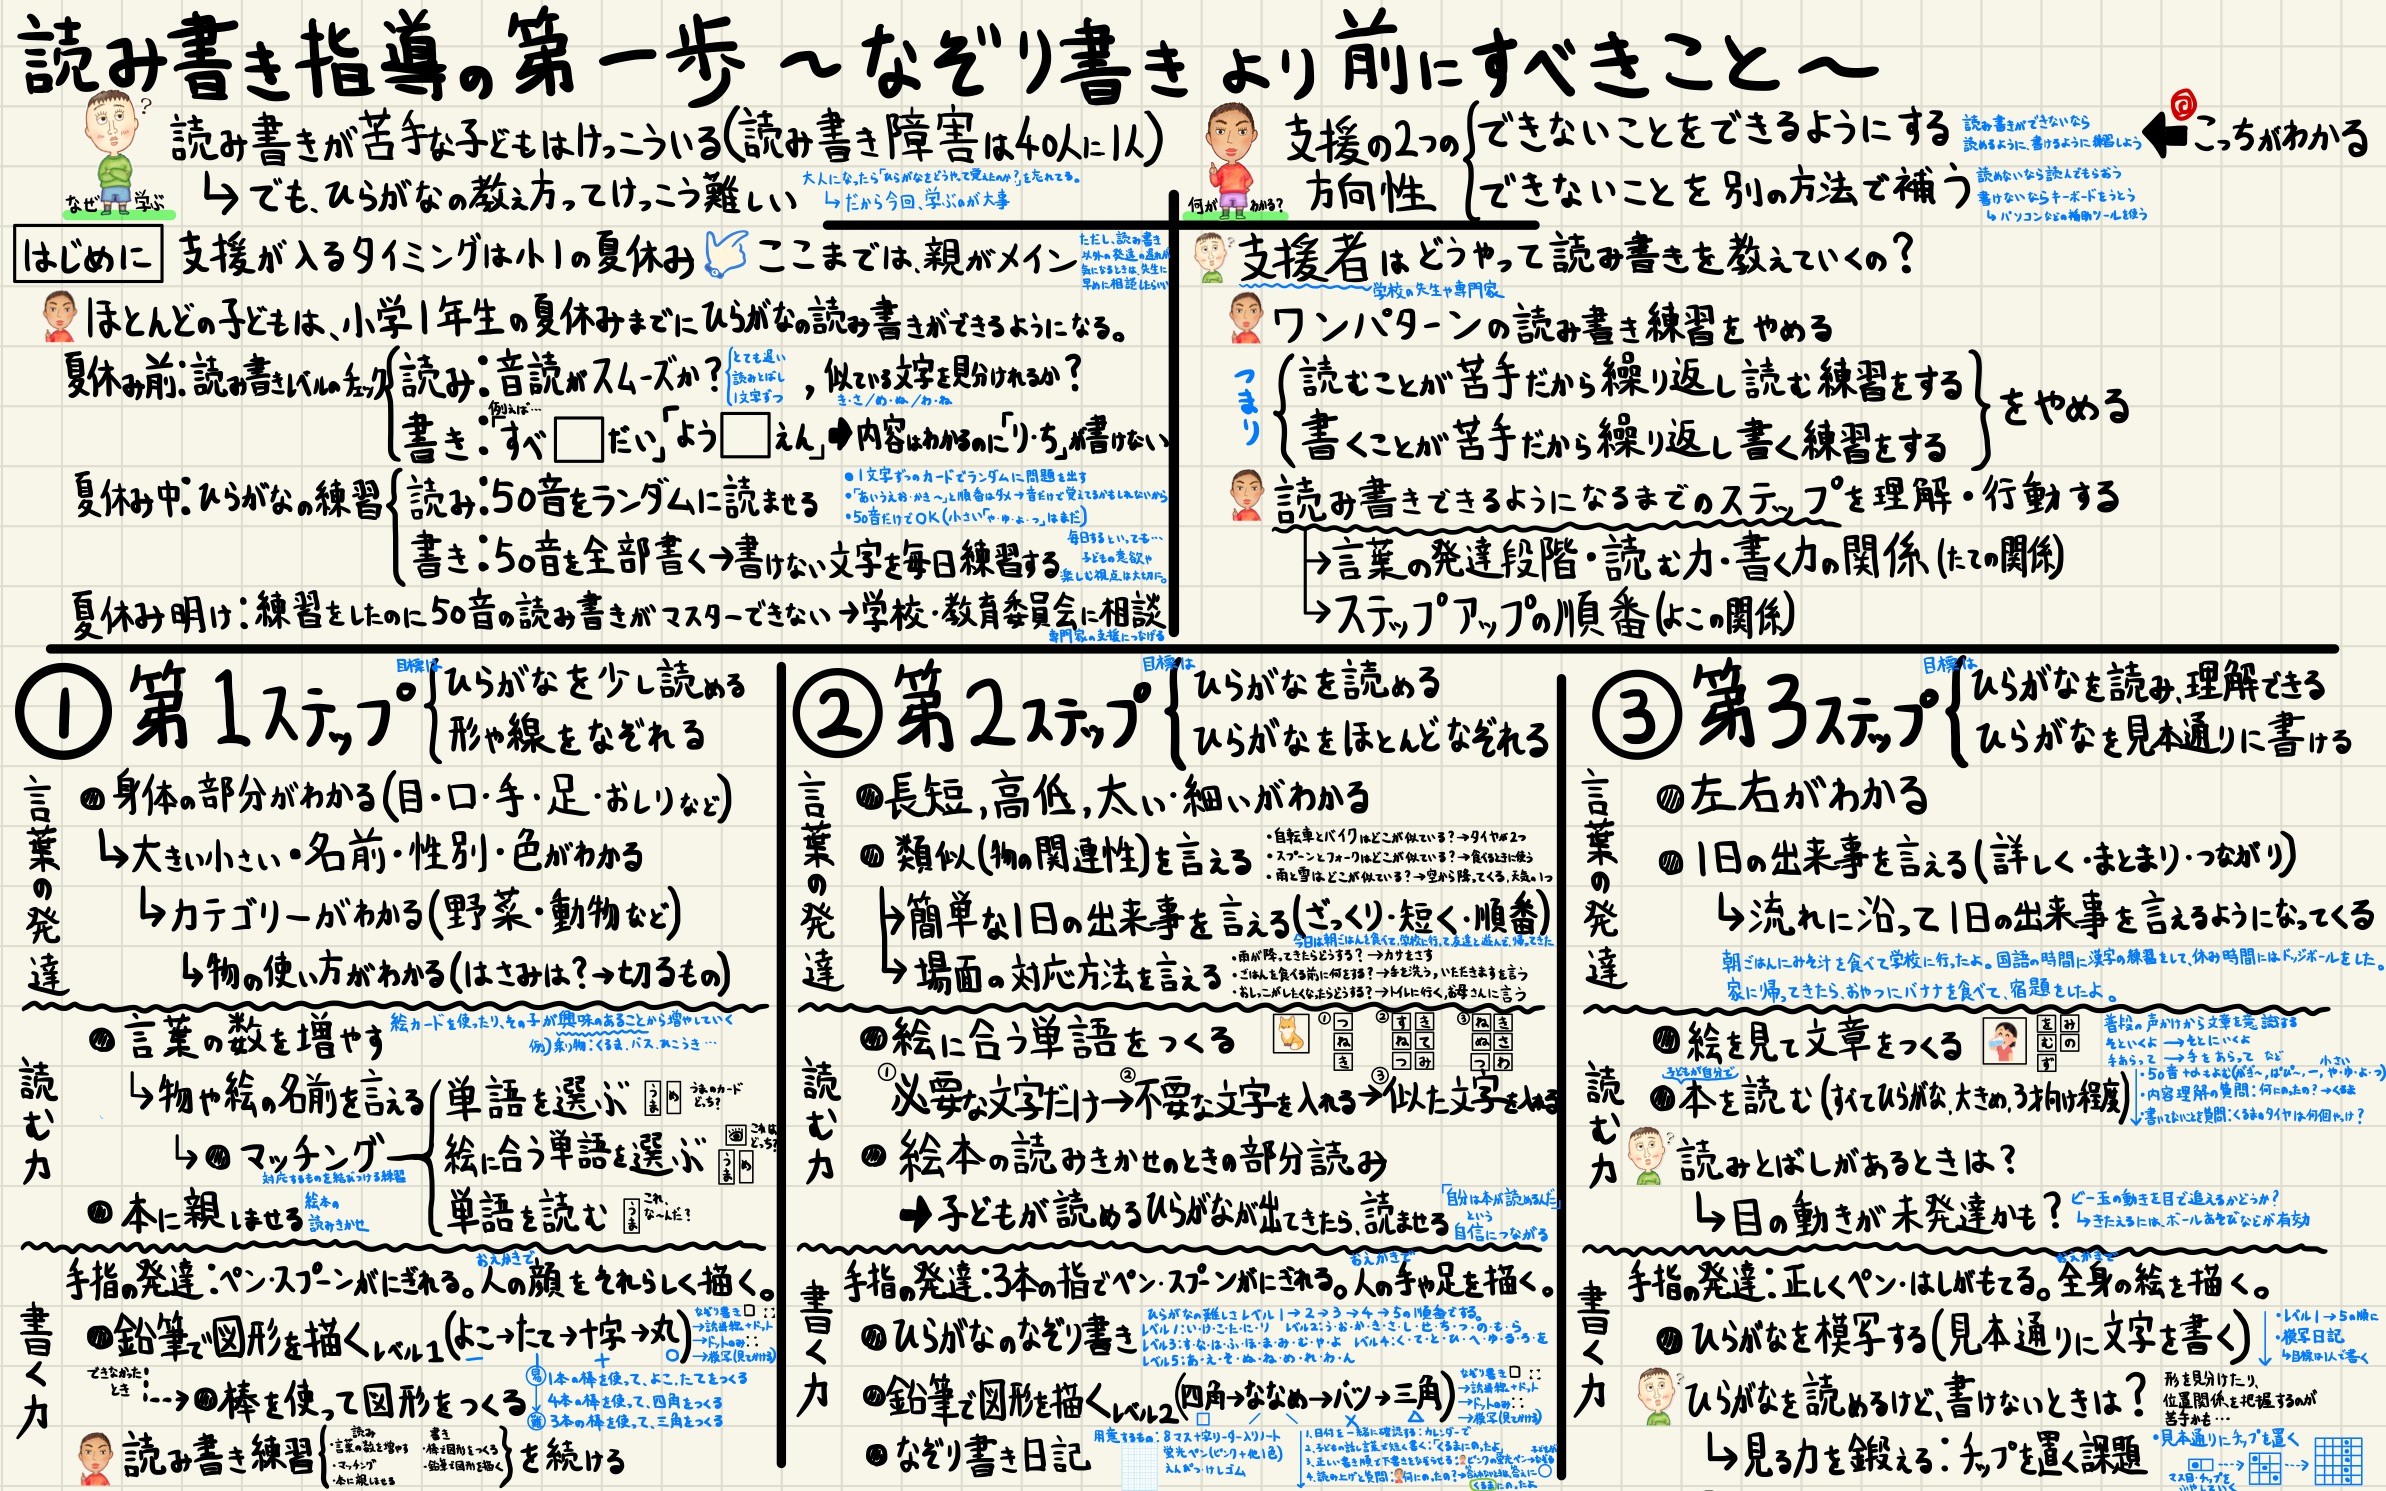 読み書き指導の第一歩 〜なぞり書きより前にすべきこと〜
?
なぜ学ぶ
読み書きが苦手な子どもはけっこういる(読み書き障害は40人に1人)
↳でも、ひらがなの教え方ってけっこう難しい
大人になったら「ひらがなをどうやって覚えたのか?」を忘れてる。
↳だから今回、学ぶのが大事
何がわかる?
支援の2つの方向性
できないことをできるようにする
読み書きができないなら
読めるように、書けるように練習しよう
←こっちがわかる
できないことを別の方法で補う
読めないなら読んでもらおう
書けないならキーボードをうとう
↳パソコンなどの補助ツールを使う
はじめに
支援が入るタイミングは小1の夏休み
ここまでは、親がメイン
ただし、読み書き
以外の発達の遅れが
気になるときは、先生に
早めに相談したらいい
ほとんどの子どもは、小学1年生の夏休みまでにひらがなの読み書きができるようになる。
夏休み前:読み書きレベルのチェック
読み:音読がスムーズか?
とても遅い
読みとばし
1文字ずつ
,似ている文字を見分けれるか?
き・さ/め・ぬ/わ・ね
例えば…
書き:「すべ□だい」「よう□えん」➡内容はわかるのに「り・ち」が書けない
夏休み中:ひらがなの練習
読み:50音をランダムに読ませる
●1文字ずつのカードでランダムに問題を出す
・「あいうえお・かき〜」と順番はダメ→音だけで覚えてるかもしれないから
・50音だけでOK(小さい「ゃ・ゅ・ょ・っ」はまだ)
書き:50音を全部書く→書けない文字を毎日練習する
毎日するといっても…
子どもの意欲や
楽しむ視点は大切に。
夏休み明け:練習をしたのに50音の読み書きがマスターできない→学校・教育委員会に相談
専門家の支援につなげる
?
支援者はどうやって読み書きを教えていくの?
学校の先生や専門家
ワンパターンの読み書き練習をやめる
つまり
読むことが苦手だから繰り返し読む練習をする
書くことが苦手だから繰り返し書く練習をする
をやめる
読み書きできるようになるまでのステップを理解・行動する
→言葉の発達段階・読む力・書く力の関係(たての関係)
→ステップアップの順番(よこの関係)
①第1ステップ
目標は
ひらがなを少し読める
形や線をなぞれる
言葉の発達
●身体の部分がわかる(目・口・手・足・おしりなど)
↳大きい小さい・名前・性別・色がわかる
↳カテゴリーがわかる(野菜・動物など)
↳物の使い方がわかる(はさみは?→切るもの)
読む力
●言葉の数を増やす
絵カードを使ったり、その子が興味のあることから増やしていく
例)乗り物:くるま、バス、ひこうき…
↳物や絵の名前を言える
↳●マッチング
対応するものを結びつける練習
単語を選ぶ
うま め
うまのカード
どっち?
絵に合う単語を選ぶ
うま め
これは
どっち?
単語を読む
うま
これ、
な〜んだ?
●本に親しませる
絵本の
読みきかせ
書く力
手指の発達:ペン・スプーンがにぎれる。人の顔をそれらしく描く。
おえかきで
●鉛筆で図形を描くレベル1(よこ→たて→十字→丸)
なぞり書き
→誘導線+ドット
→ドットのみ
→模写(見てかける)
できなかった
とき
●棒を使って図形をつくる
易 1本の棒を使って、よこ、たてをつくる
4本の棒を使って、四角をつくる
難 3本の棒を使って、三角をつくる
読み書き練習
読み
・言葉の数を増やす
・マッチング
・本に親しませる
書き
・棒で図形をつくる
・鉛筆で図形を描く
を続ける
②第2ステップ
目標は
ひらがなを読める
ひらがなをほとんどなぞれる
言葉の発達
●長短,高低,太い・細いがわかる
●類似(物の関連性)を言える
・自転車とバイクはどこが似ている?→タイヤが2つ
・スプーンとフォークはどこが似ている?→食べるときに使う
・雨と雪はどこが似ている?→空から降ってくる、天気の1つ
→簡単な1日の出来事を言える(ざっくり・短く・順番)
今日は朝ごはんを食べて、学校に行って友達と遊んで、帰ってきた
↳場面の対応方法を言える
・雨が降ってきたらどうする?→カサをさす
・ごはんを食べる前に何をする?→手を洗う,いただきますを言う
・おしっこがしたくなったらどうする?→トイレに行く,お母さんに言う
読む力
●絵に合う単語をつくる
① つ ね き
② す き ね て つ み
③ ね き ぬ さ つ わ
①必要な文字だけ→②不要な文字を入れる→③似た文字を入れる
●絵本の読みきかせのときの部分読み
➡子どもが読めるひらがなが出てきたら、読ませる
「自分は本が読めるんだ」
という
自信につながる
書く力
手指の発達:3本の指でペン・スプーンがにぎれる。人の手や足を描く。
おえかきで
●ひらがなのなぞり書き
ひらがなの難しさレベル1→2→3→4→5の順番でする。
レベル1:い・け・こ・た・に・り レベル2:う・お・か・き・さ・し・せ・ち・つ・の・も・ら
レベル3:す・な・は・ふ・ほ・ま・み・む・や・よ レベル4:く・て・と・ひ・へ・ゆ・る・ろ・を
レベル5:あ・え・そ・ぬ・ね・め・れ・わ・ん
●鉛筆で図形を描くレベル2(四角→ななめ→バツ→三角)
なぞり書き
→誘導線+ドット
→ドットのみ
→模写(見てかける)
●なぞり書き日記
用意するもの:8マス十字リーダー入りノート
蛍光ペン(ピンク+他1色)
えんぴつ・けしゴム
1.日付を一緒に確認する:カレンダーで
2.子どもの話し言葉で短く書く:「くるまにのったよ」
3.正しい書き順で下書きをなぞらせる:ピンクの蛍光ペン→なぞる
4.読み上げと質問:何にのったの?
くるまにのったよ
③第3ステップ
目標は
ひらがなを読み、理解できる
ひらがなを見本通りに書ける
言葉の発達
●左右がわかる
●1日の出来事を言える(詳しく・まとまり・つながり)
↳流れに沿って1日の出来事を言えるようになってくる
朝ごはんにみそ汁を食べて学校に行ったよ。国語の時間に漢字の練習をして、休み時間にはドッジボールをした。
家に帰ってきたら、おやつにバナナを食べて、宿題をしたよ。
読む力
●絵を見て文章をつくる
を み む の ず
普段の声かけから文章を意識する
そといくよ→そとにいくよ
手あらって→手をあらって など
子どもが自分で
●本を読む(すべてひらがな,大きめ,3才向け程度)
小さい
・内容理解の質問:何にのったの?→くるま
・書いてないことを質問:くるまのタイヤは何個やっけ?
?
読みとばしがあるときは?
↳目の動きが未発達かも?
ビー玉の動きを目で追えるかどうか?
↳きたえるには、ボールあそびなどが有効
書く力
手指の発達:正しくペン・はしがもてる。全身の絵を描く。
おえかきで
●ひらがなを模写する(見本通りに文字を書く)
・レベル1→5の順に
・模写日記
↳目標は1人で書く
?
ひらがなを読めるけど、書けないときは?
形を見分けたり、
位置関係を把握するのが
苦手かも…
↳見る力を鍛える:チップを置く課題
・見本通りにチップを置く
マス目・チップを